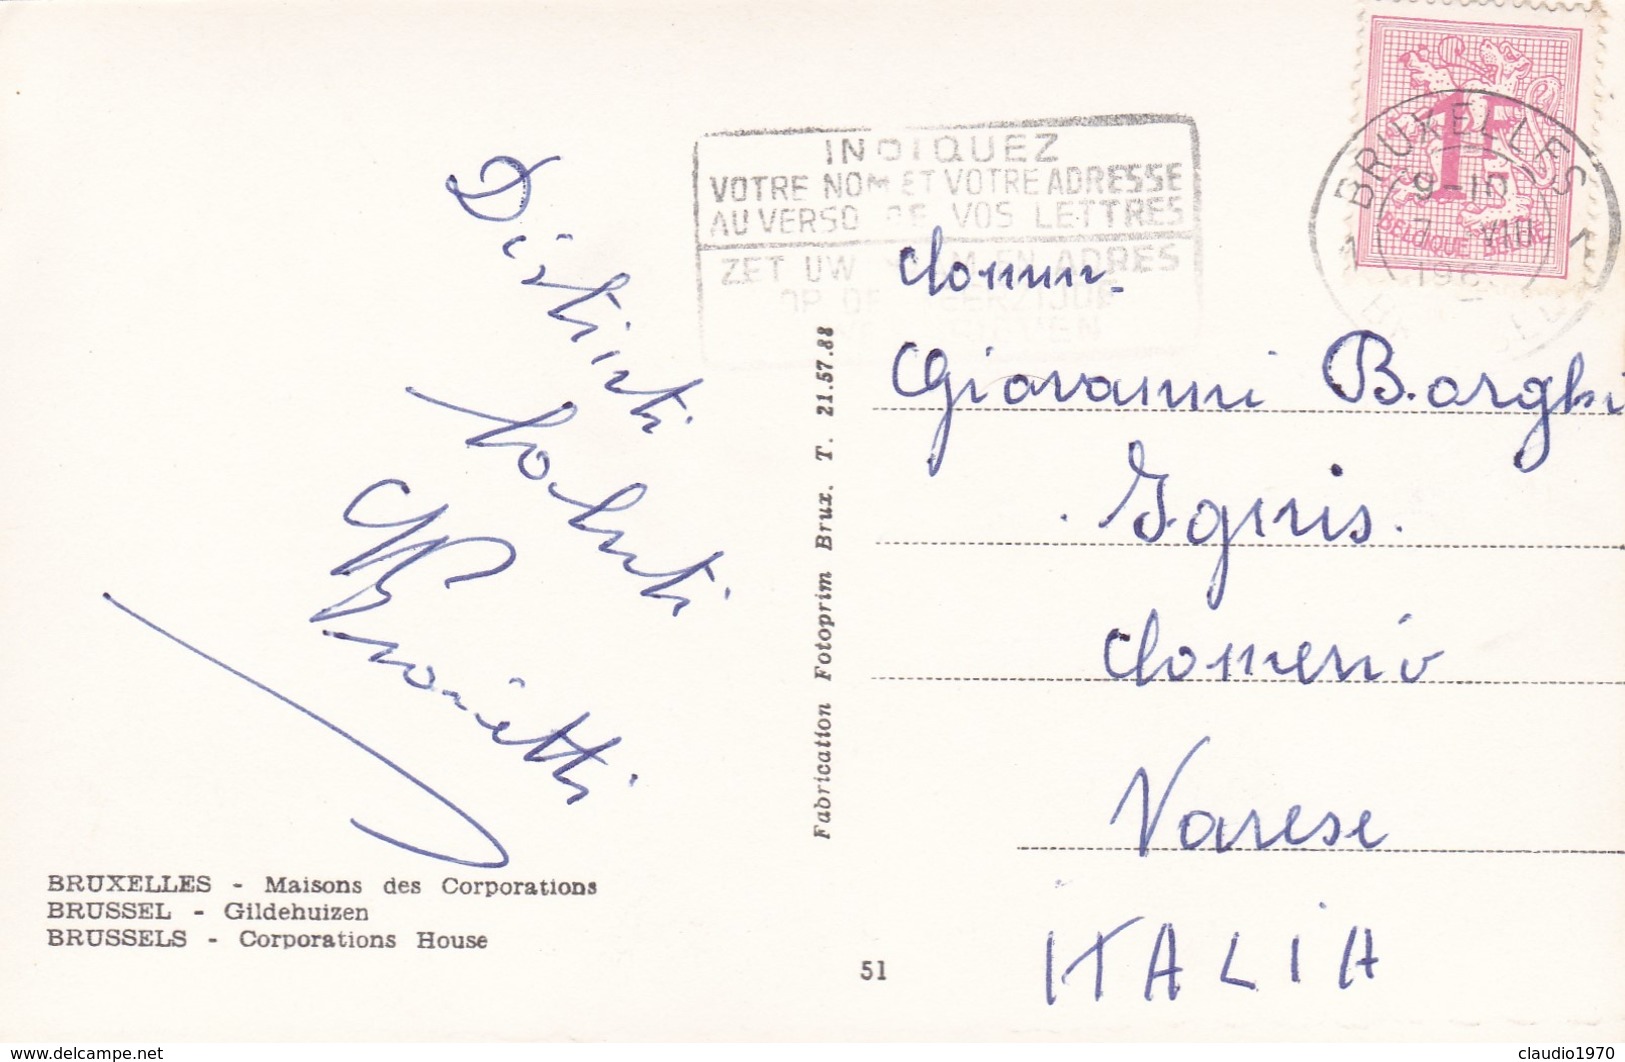 INDIQUEZ
VOTRE NOM ET VOTRE ADRESSE
AU VERSO DE VOS LETTRES
ZET UW NAAM EN ADRES
BRUXELLES
9-10
VIII
BELGIQUE BELGIË
1F
Distinti
Saluti
Proietti
Comm.
Giovanni Borghi
Ignis.
Comerio
Varese
ITALIA
Fabrication Fotoprim Brux. T. 21.57.88
BRUXELLES - Maisons des Corporations
BRUSSEL - Gildehuizen
BRUSSELS - Corporations House
51
www.delcampe.net
claudio1970